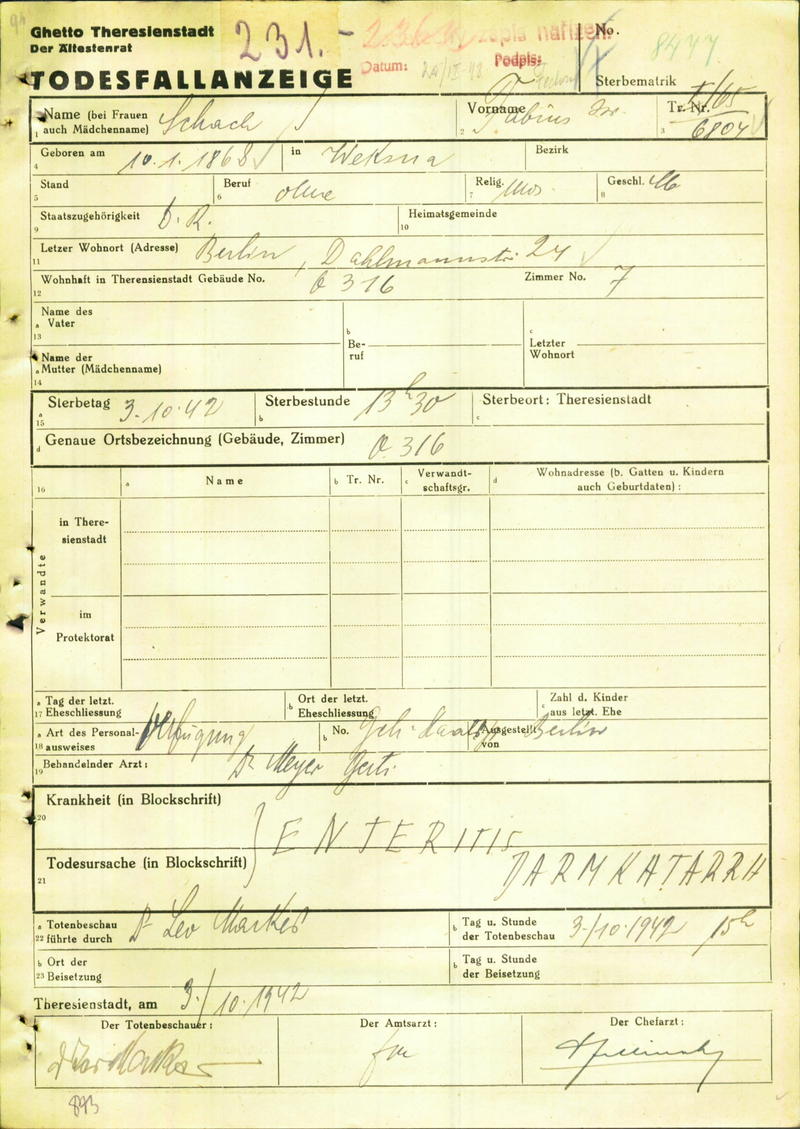 Ghetto Theresienstadt
Der Ältestenrat
231.-
No.
8477
Datum:
Podpis:
TODESFALLANZEIGE
Sterbematrik
Name (bei Frauen auch Mädchenname) Schach
1
Vorname
2
Tr. Nr. I/65
6804
3
Geboren am 10.1.1868 in Weksna Bezirk
4
Stand Beruf ohne Relig. mos. Geschl. M
5 6 7 8
Staatszugehörigkeit D.R. Heimatsgemeinde
9 10
Letzer Wohnort (Adresse) Berlin, Dahlmannstr. 24
11
Wohnhaft in Theresienstadt Gebäude No. Q 316 Zimmer No. 7
12
Name des
a Vater
13
b Beruf
c Letzter Wohnort
Name der
a Mutter (Mädchenname)
14
a Sterbetag 3.10.42 b Sterbestunde 13h30 c Sterbeort: Theresienstadt
15
d Genaue Ortsbezeichnung (Gebäude, Zimmer) Q 316
16 a Name b Tr. Nr. c Verwandtschaftsgr. d Wohnadresse (b. Gatten u. Kindern auch Geburtdaten) :
Verwandte
in Theresienstadt
im
Protektorat
a Tag der letzt. b Ort der letzt. c Zahl d. Kinder
17 Eheschliessung Eheschliessung aus letzt. Ehe
a Art des Personal- b No. Ausgestellt
18 ausweises Verfügung von Berlin
Behandelnder Arzt: Dr Meyer
19
Krankheit (in Blockschrift)
20
ENTERITIS
Todesursache (in Blockschrift) DARMKATARRH
21
a Totenbeschau Dr Leo Markes b Tag u. Stunde
22 führte durch der Totenbeschau 3./10.1942 15h
b Ort der b Tag u. Stunde
23 Beisetzung der Beisetzung
Theresienstadt, am 3./10.1942
Der Totenbeschauer: Der Amtsarzt: Der Chefarzt:
893